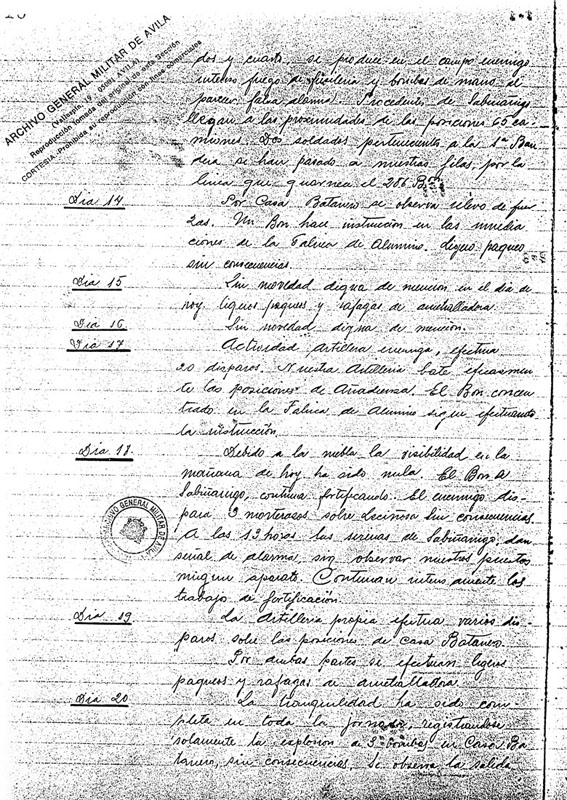 ARCHIVO GENERAL MILITAR DE AVILA
(Vallespín, 19 05001 AVILA)
Reproducción tomada del original de esta Sección
CORTESIA.-Prohibida su reproducción con fines comerciales
dos y cuarto, se produce en el campo enemigo
intenso fuego de fusileria y bombas de mano al
parecer falsa alarma. Procedentes de Sabiñanigo
llegan a las proximidades de las posiciones 65 ca-
miones. Dos soldados pertenecientes a la 1ª Ban
dera se han pasado a nuestras filas, por la
linea que guarnece el 286 Bon
Dia 14
Por Casa Batanero se observa relevo de fuer
zas. Un Bon hace instrucción en las inmedia
ciones de la Fabrica de Alumino. ligero paqueo
sin consecuencias.
Dia 15
Sin novedad digna de mencion en el dia de
hoy ligeros paqueos y rafagas de ametralladora.
Dia 16
Sin novedad digna de mención.
Dia 17
Actividad Artillera enemiga, efectua
20 disparos. Nuestra Artilleria bate eficazmen
te las posiciones de. El Bon concen
trado en la Fabrica de Alumino sigue efectuando
la instrucción.
Dia 18
Debido a la niebla la visibilidad en la
mañana de hoy ha sido nula. El Bon de
Sabiñanigo, continua fortificando. El enemigo dis-
para 3 morterazos sobre sin consecuencias.
A las 13 horas las sirenas de Sabiñanigo, dan
señal de alarma, sin observar nuestros puestos
ningun aparato. Continuan intensamente los
trabajo de fortificación.
ARCHIVO GENERAL MILITAR DE AVILA
Dia 19
La Artilleria propia efectua varios dis-
paros sobre las posiciones de Casa Batanero.
Por ambas partes se efectuan ligeros
paqueos y rafagas de ametralladora.
Dia 20
La tranquilidad ha sido com
pleta en toda la jornada, registrandose
solamente la explosion de 3 bombas en Casa Ba
tanero, sin consecuencias. Se observa la salida